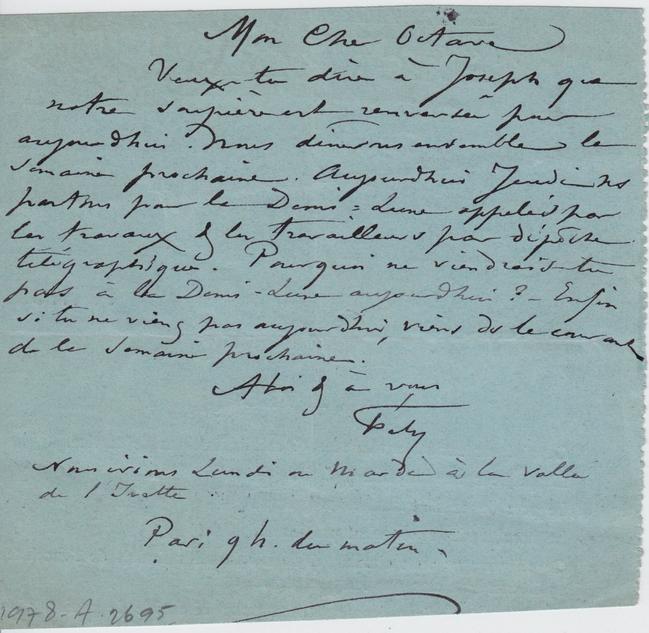 Mon Cher Octave
Veux-tu dire à Joseph que
notre soupière est renversée pour
aujourd'hui. Nous dinerons ensemble la
semaine prochaine. Aujourdhui Jeudi ns
partons pour la Demi-Lune appelés par
les travaux & les travailleurs par dépêche
télégraphique. Pourquoi ne viendrais-tu
pas à la Demi-Lune aujourdhui ? - Enfin
si tu ne viens pas aujourdhui, viens ds le courant
de la semaine prochaine.
A toi & à vous
Fély
Nous irions Lundi ou Mardi à la vallée
de l'Ivette
Paris 9 h. du matin
1978-A-2695